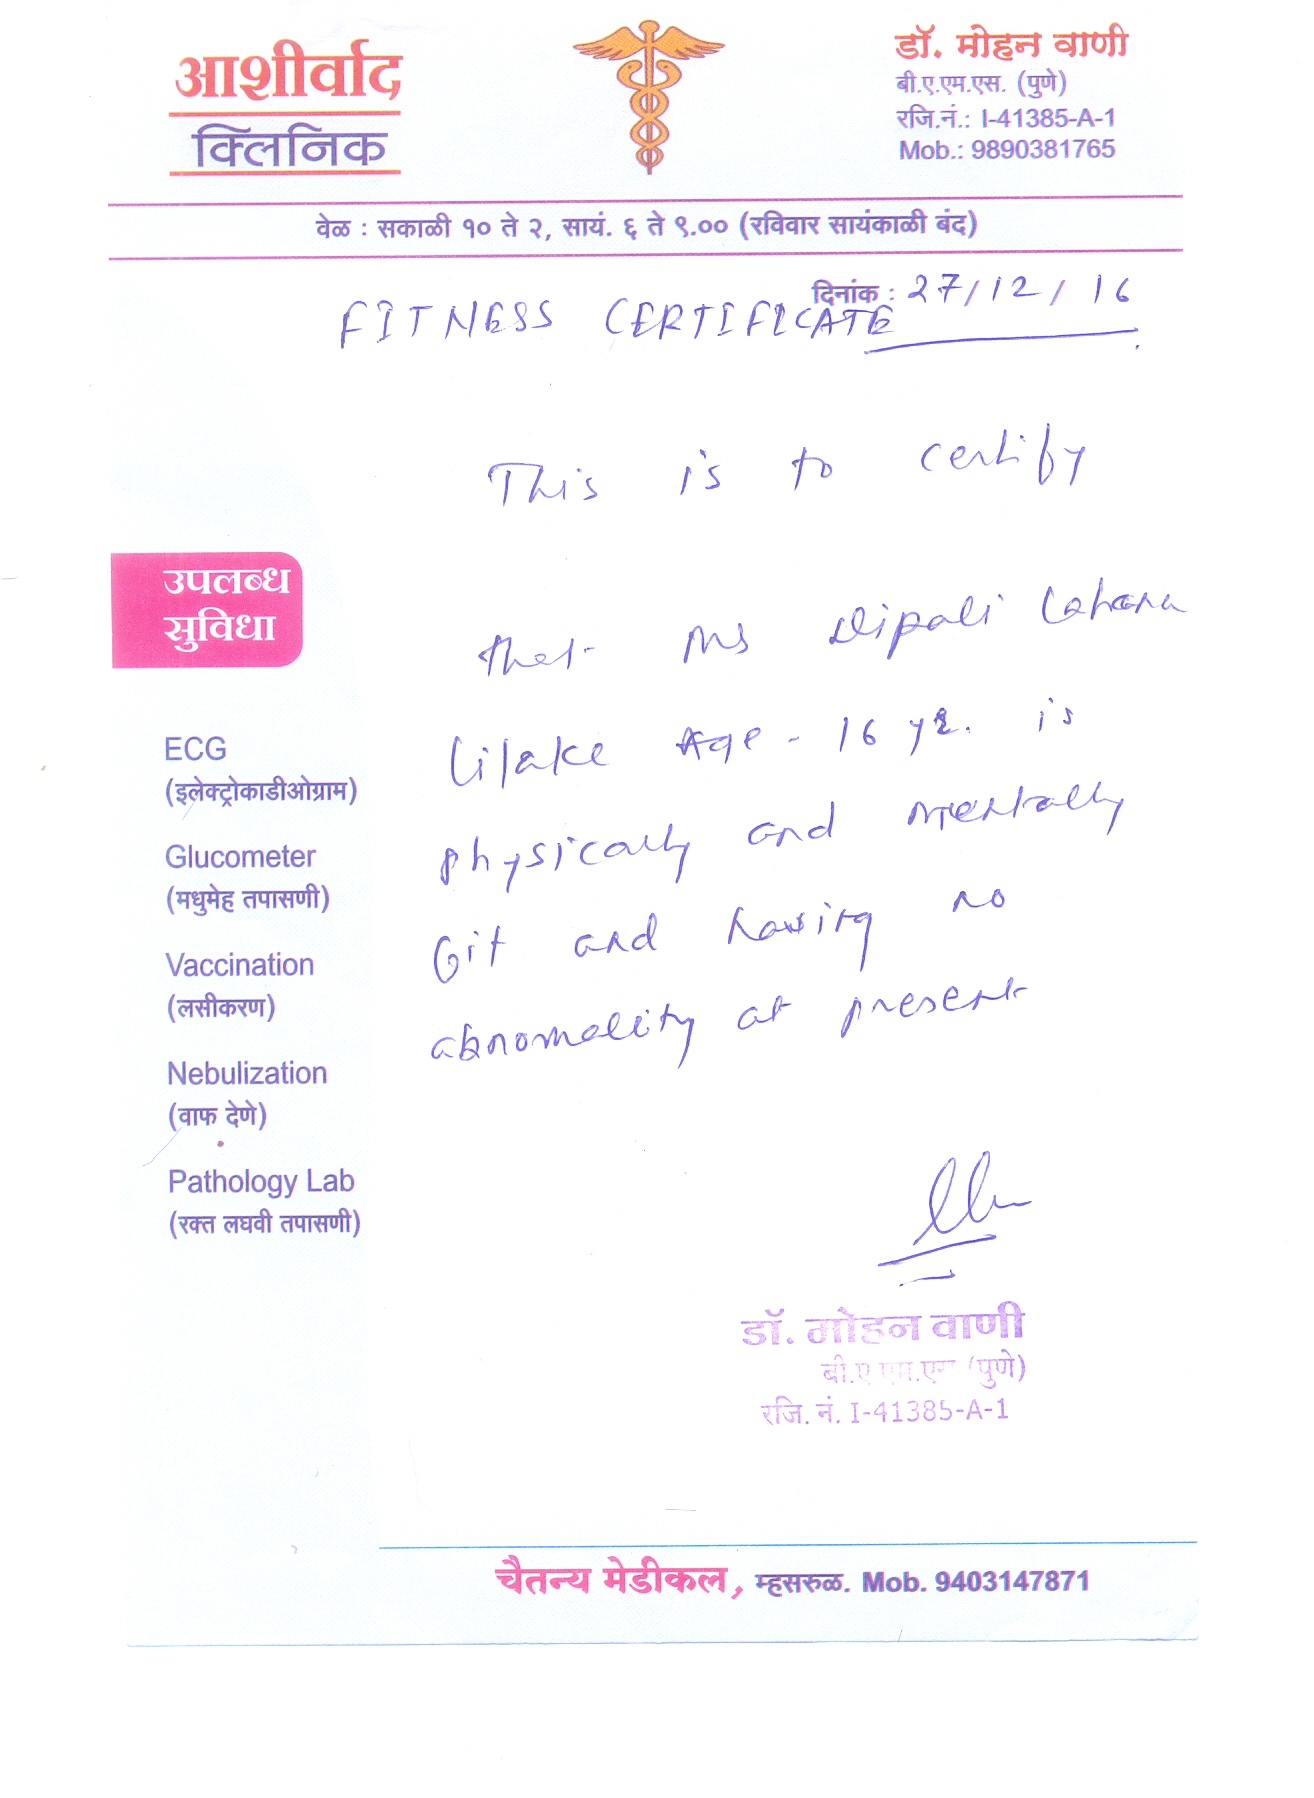 आशीर्वाद
क्लिनिक
डॉ. मोहन वाणी
बी.ए.एम.एस. (पुणे)
रजि.नं.: I-41385-A-1
Mob.: 9890381765
वेळ : सकाळी १० ते २, सायं. ६ ते ९.०० (रविवार सायंकाळी बंद)
दिनांक : 27/12/16
FITNESS CERTIFICATE
This is to certify
that Ms Dipali Lahanu
Lilake Age - 16 yr. is
physically and mentally
fit and having no
abnomality at present
उपलब्ध
सुविधा
ECG
(इलेक्ट्रोकाडीओग्राम)
Glucometer
(मधुमेह तपासणी)
Vaccination
(लसीकरण)
Nebulization
(वाफ देणे)
Pathology Lab
(रक्त लघवी तपासणी)
डॉ. मोहन वाणी
बी.ए.एम.एस (पुणे)
रजि. नं. I-41385-A-1
चैतन्य मेडीकल, म्हसरुळ. Mob. 9403147871